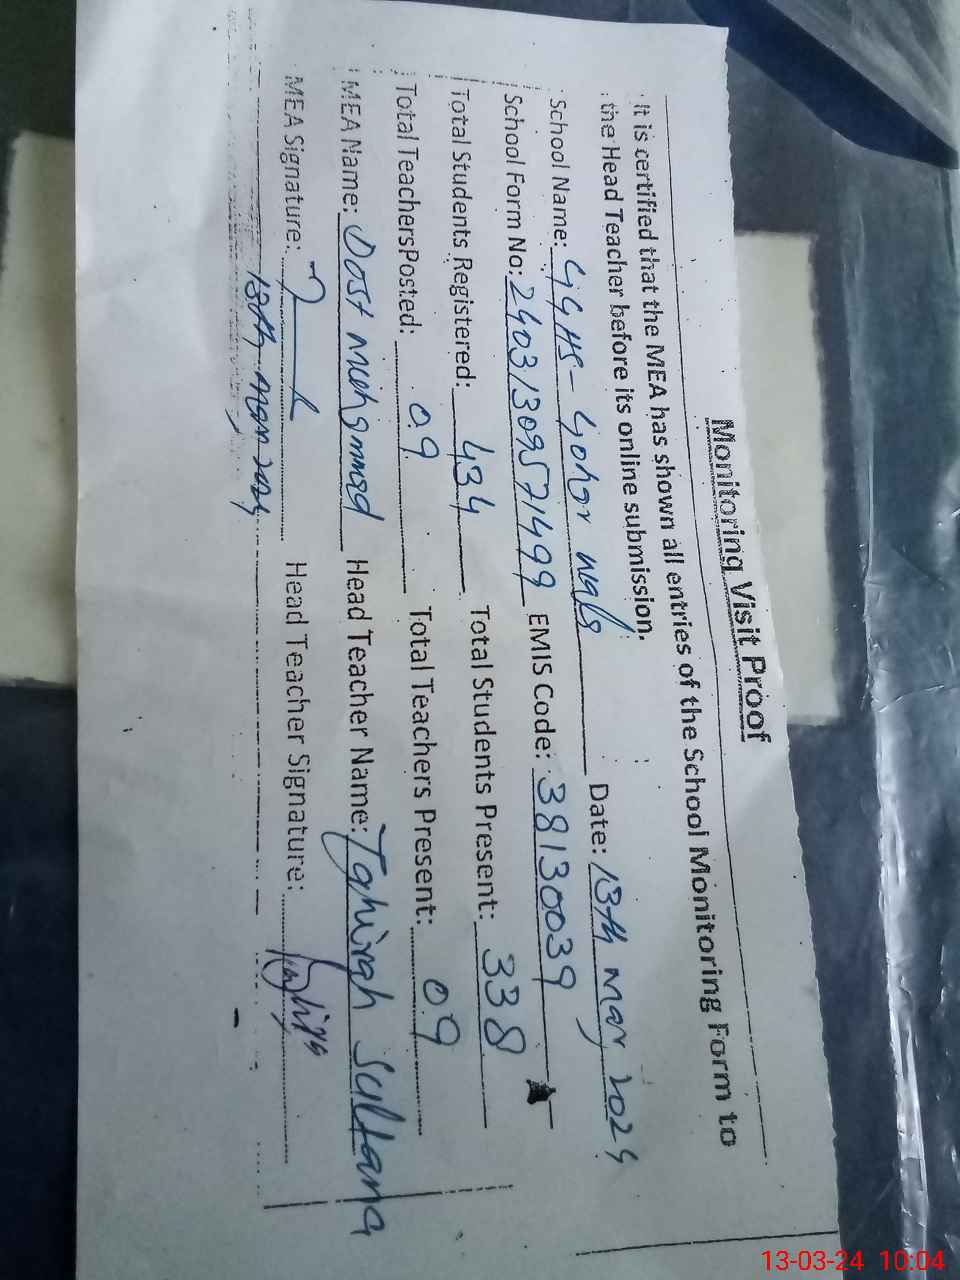 Monitoring Visit Proof
It is certified that the MEA has shown all entries of the School Monitoring Form to
the Head Teacher before its online submission.
School Name: GGHS- Gohar wala Date: 13th mar 2024
School Form No: 24031309571499 EMIS Code: 38130039
Total Students Registered: 434 Total Students Present: 338
Total TeachersPosted: 09 Total Teachers Present: 09
MEA Name: Dost muhammad Head Teacher Name: Tahirah Sultana
MEA Signature: Head Teacher Signature:
13th mar 2024
13-03-24 10:04